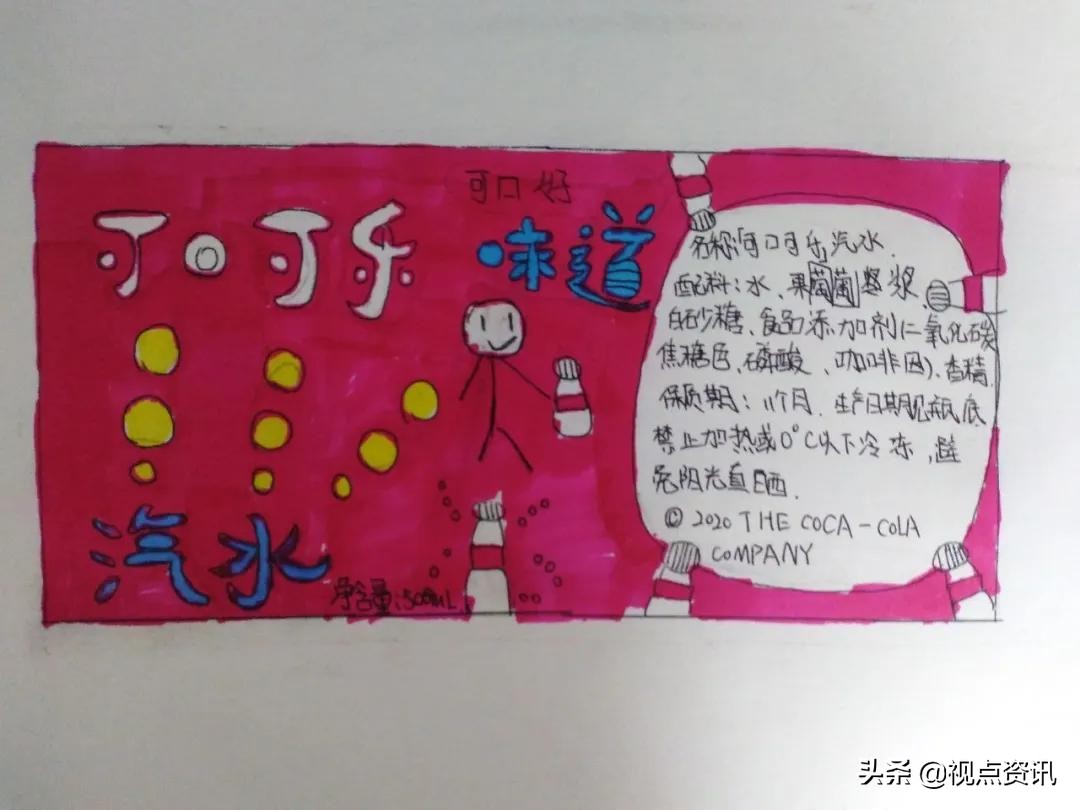 可口可乐
可口好
味道
汽水
净含量:500mL
名称:可口可乐汽水
配料:水、果葡葡糖浆
白砂糖、食品添加剂二氧化碳
焦糖色、磷酸、咖啡因)、香精
保质期:11个月.生产日期见瓶底
禁止加热或0°C以下冷冻,避
免阳光直晒.
© 2020 THE COCA-COLA
COMPANY
头条 @视点资讯